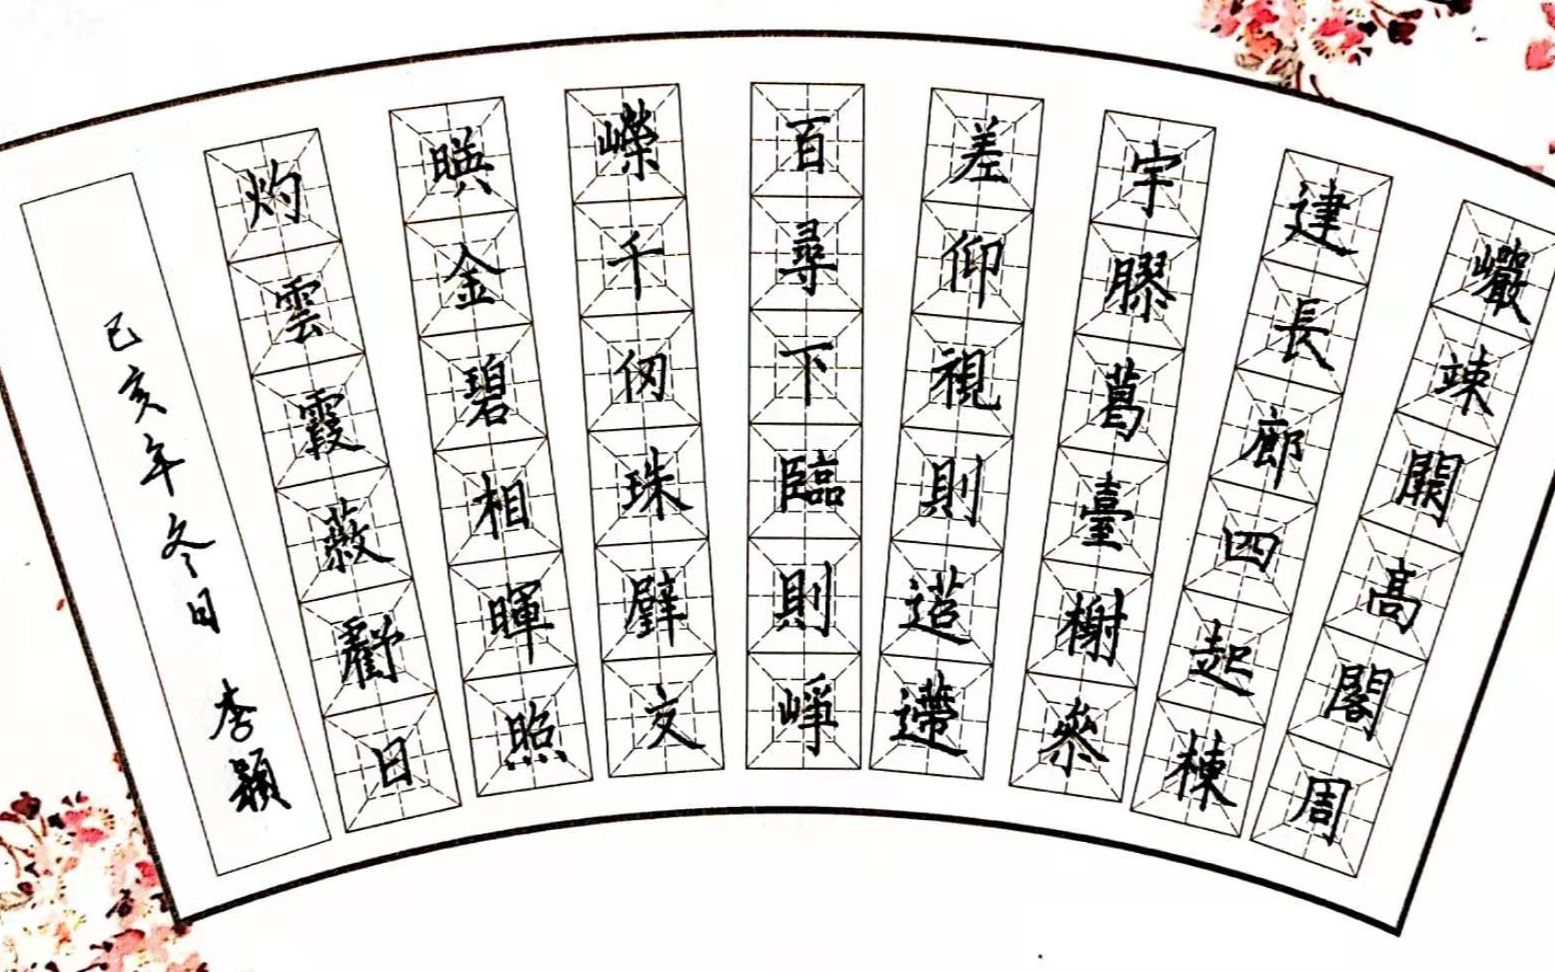 巗竦闕高閣周
建長廊四起棟
宇膠葛臺榭參
差仰視則迢遰
百尋下臨則崢
嶸千仞珠璧交
暎金碧相暉照
灼雲霞蔽虧日
己亥年冬日 李穎